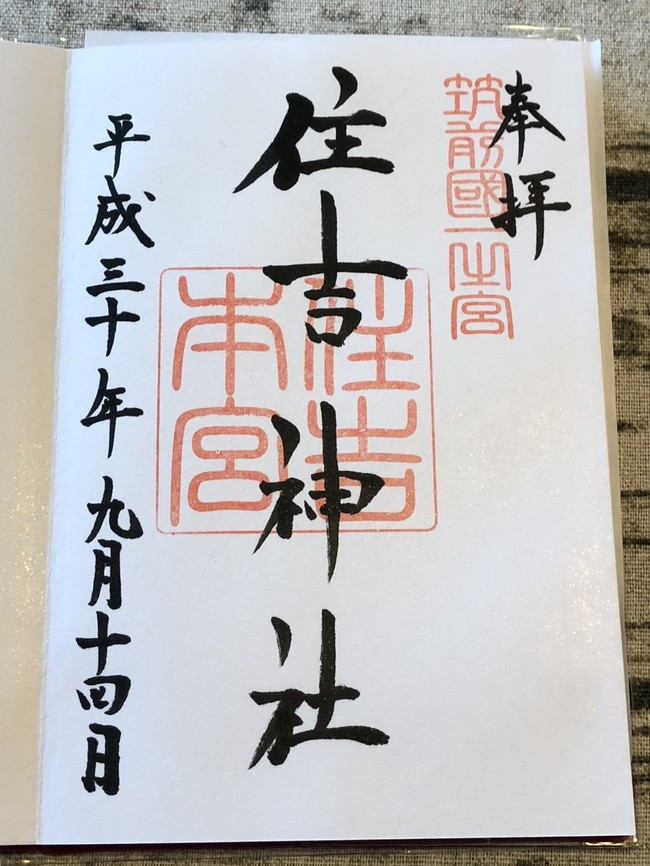 奉拝
筑前國一之宮
住吉神社
住吉本宮
平成三十年九月十四日